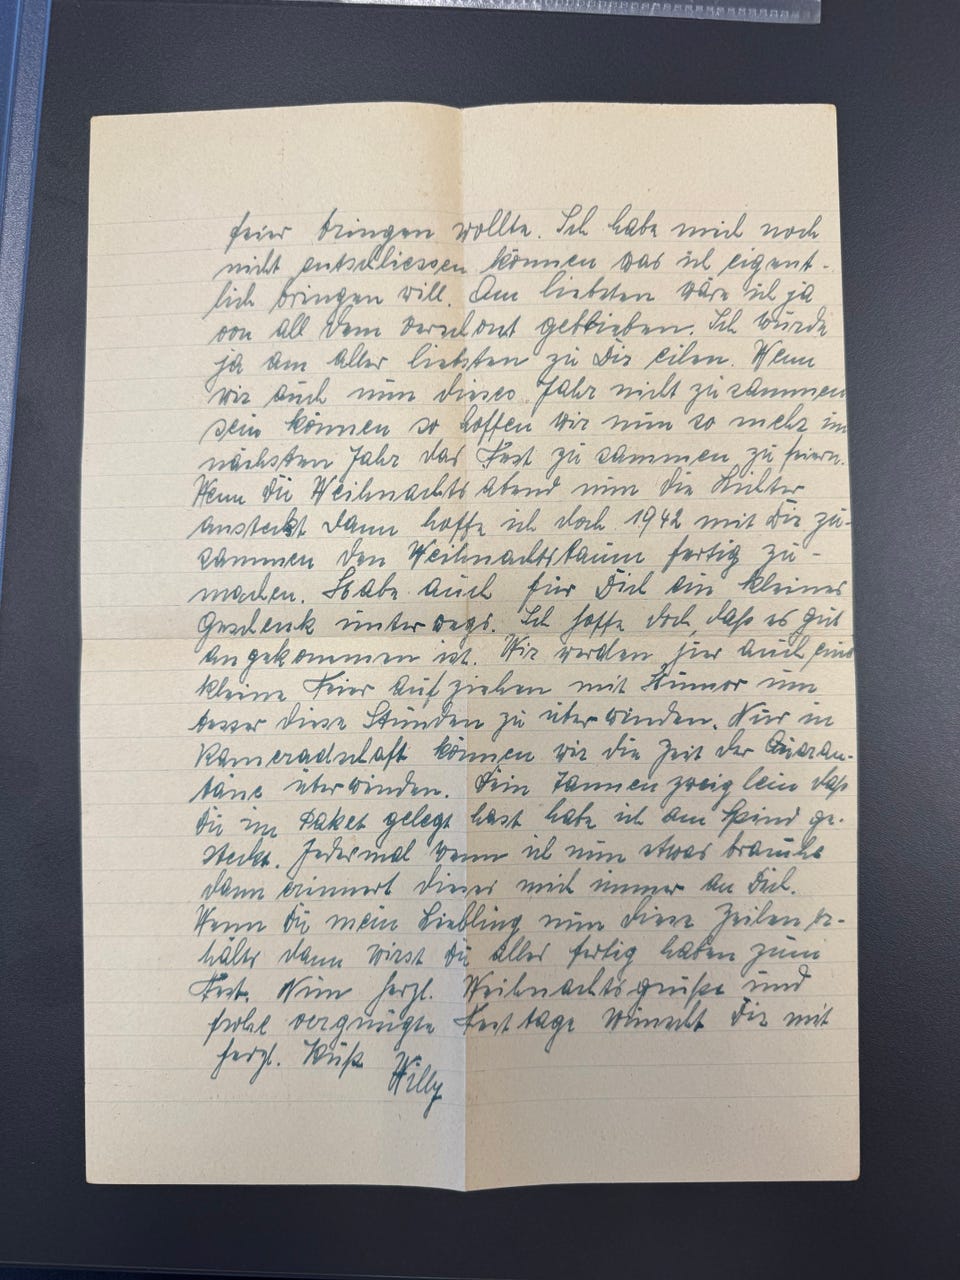 feier bringen wollte. Ich habe mich noch
nicht entschliessen können was ich eigent-
lich bringen will. Am liebsten wäre ich ja
von all dem verschont geblieben. Ich würde
ja am aller liebsten zu Dir eilen. Wenn
wir auch nun dieses Jahr nicht zusammen
sein können so hoffen wir nun so mehr im
nächsten Jahr das Fest zu sammen zu feiern.
Wenn Du Weihnachtsabend nun die Lichter
ansteckst dann hoffe ich doch 1942 mit Dir zu-
sammen den Weihnachtsbaum fertig zu-
machen. Habe auch für Dich ein kleines
Geschenk unterwegs. Ich hoffe doch, daß es gut
angekommen ist. Wir werden hier auch eine
kleine Feier aufziehen mit Humor um
besser diese Stunden zu überwinden. Nur in
Kameradschaft können wir die Zeit der Quaran-
täne überwinden. Dein Tannenzweiglein daß
Du im Paket gelegt hast habe ich am Spind ge-
steckt. Jedesmal wenn ich nun etwas brauche
dann erinnert dieses mich immer an Dich.
Wenn Du mein Liebling nun diese Zeilen er-
hälts dann wirst Du alles fertig haben zum
Fest. Nun herzl. Weihnachtsgrüße und
frohe vergnügte Festtage wünscht Dir mit
herzl. Kuß
Willy